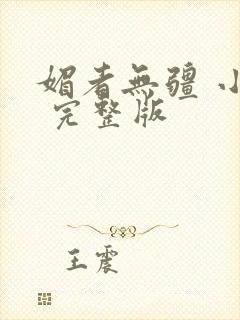 媚者無疆 小
完整版
王震